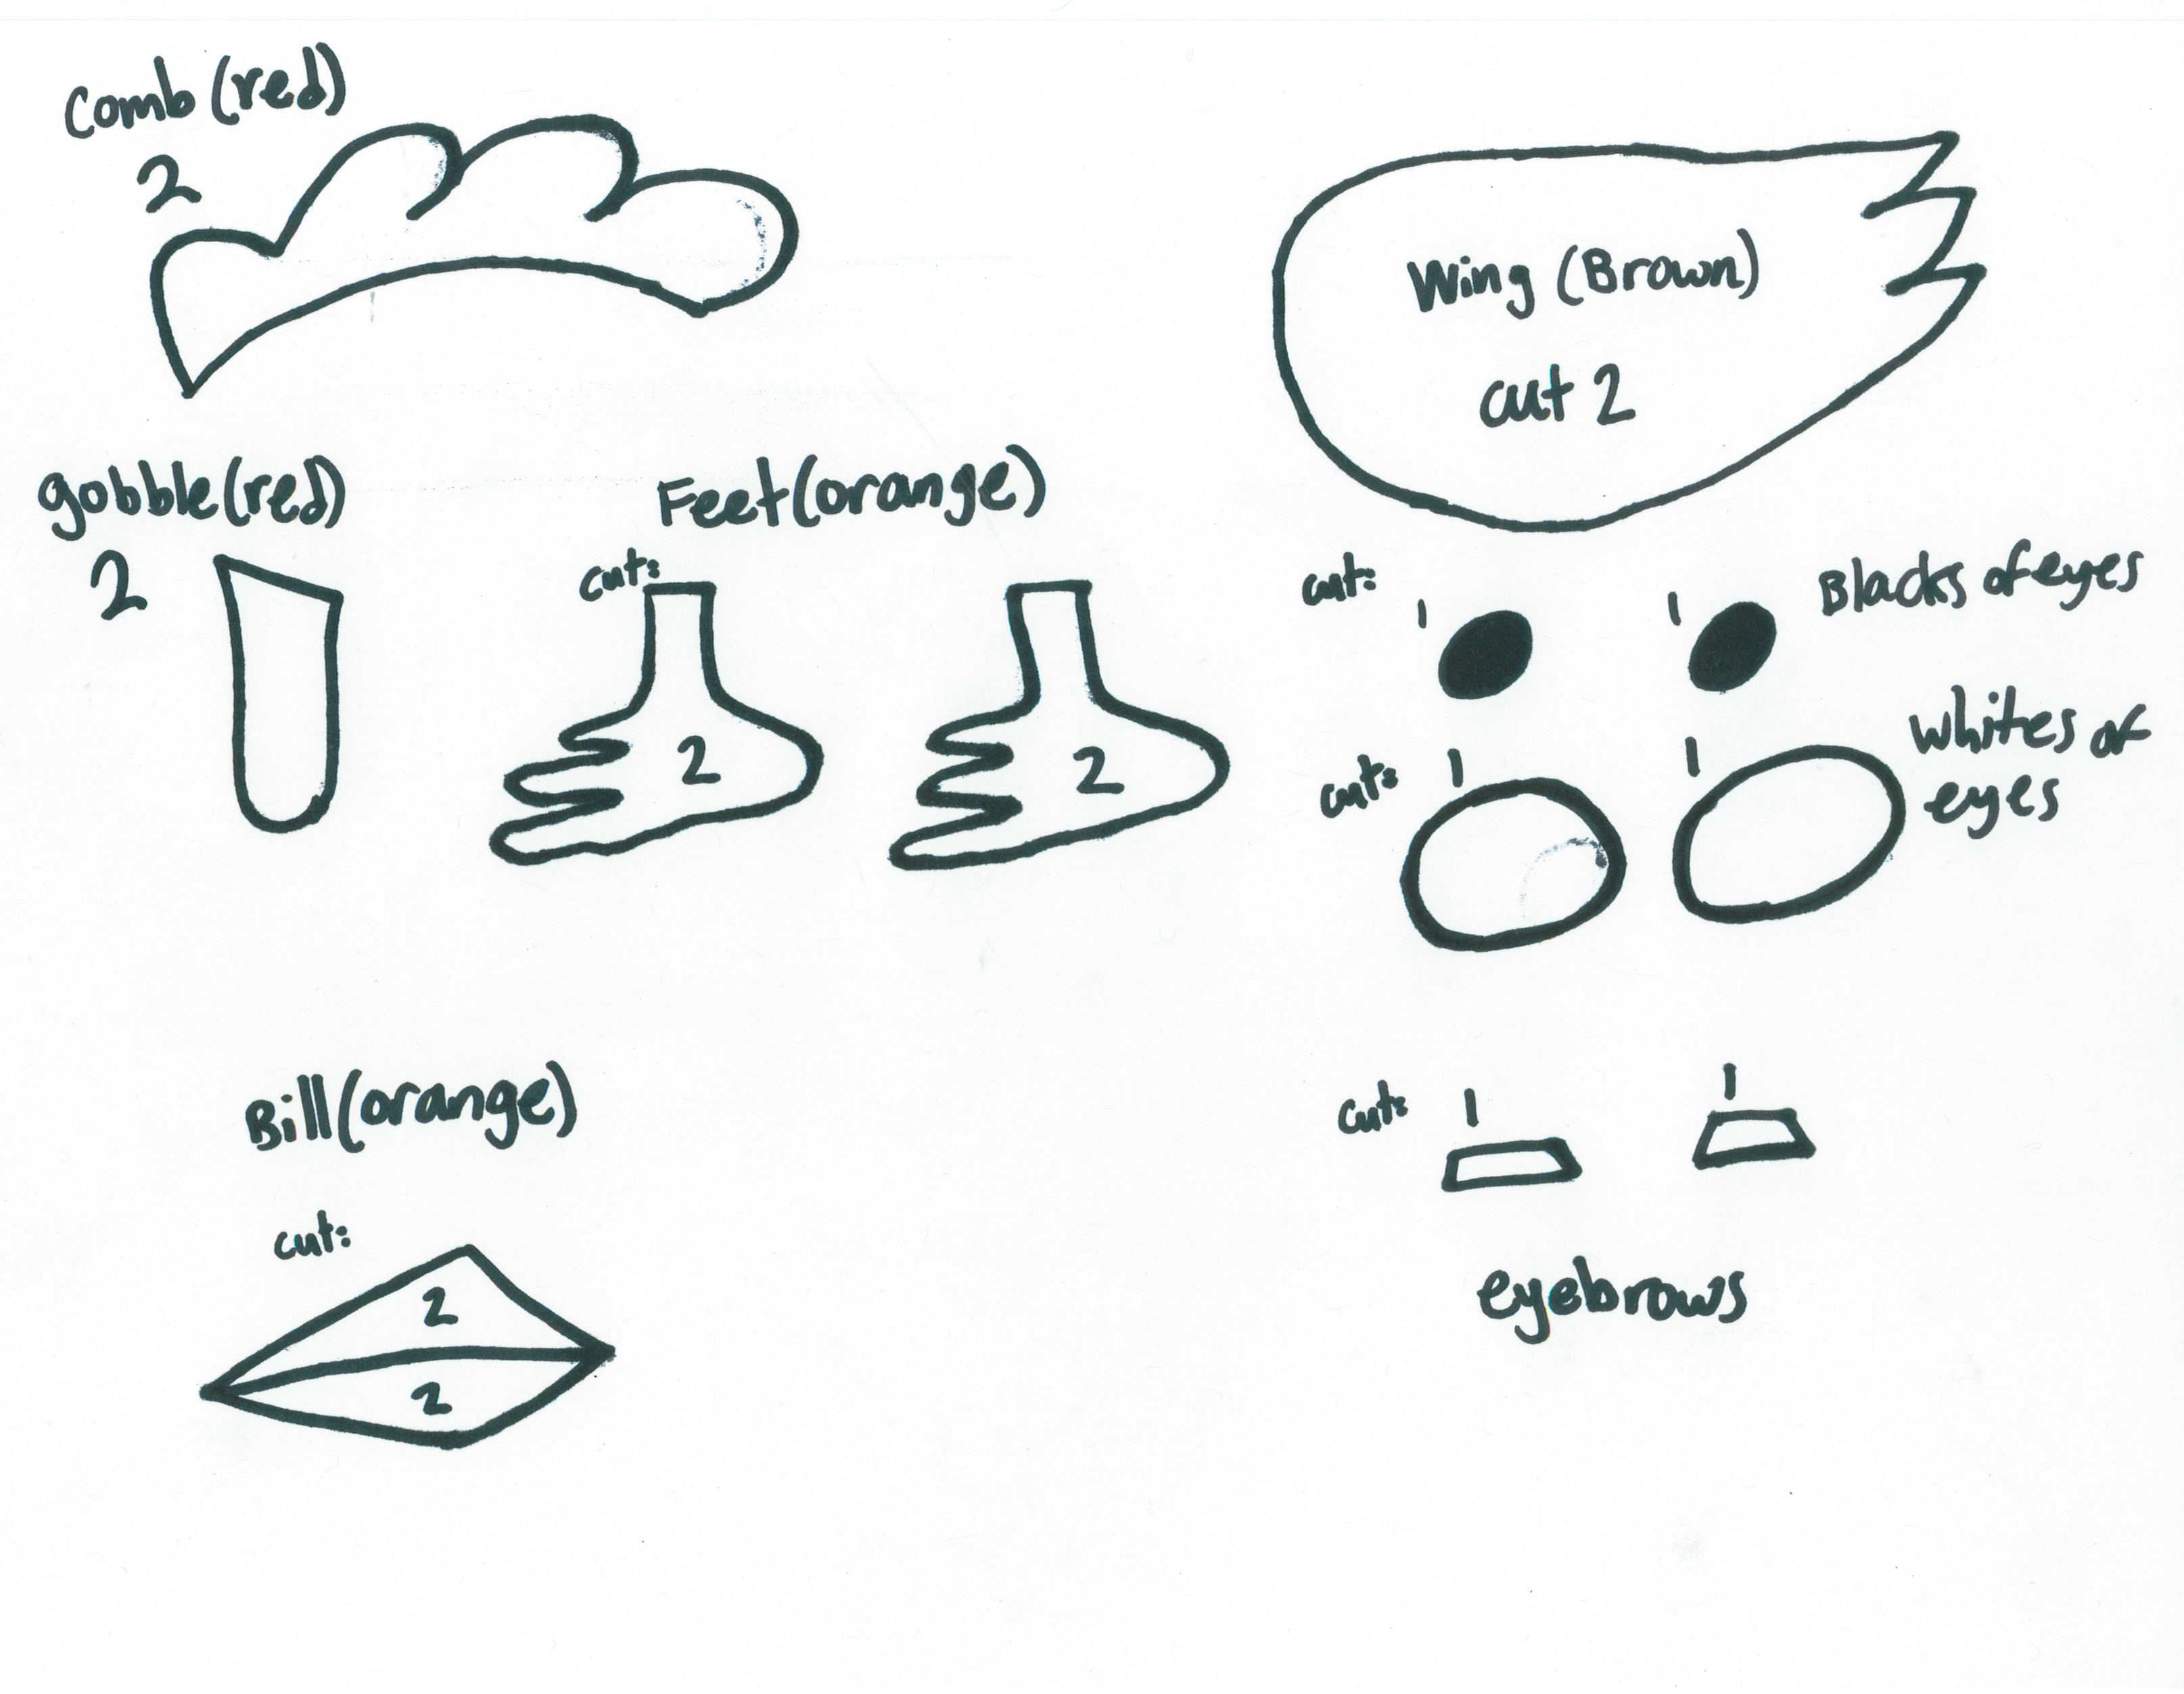 Comb (red)
2
Wing (Brown)
cut 2
gobble (red)
2
Feet (orange)
cut:
2
2
cut:
1
1
Blacks of eyes
cut:
1
1
Whites of
eyes
Bill (orange)
cut:
2
2
cut:
1
1
eyebrows